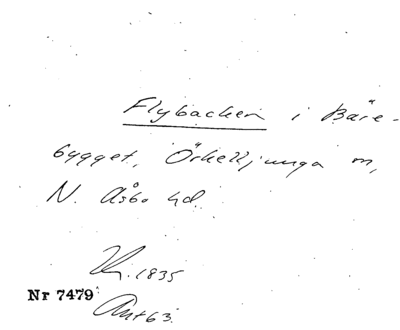 Flybacken i Bäre-
bygget, Örkelljunga
N. Åsbo hd.
1835
Nr 7479